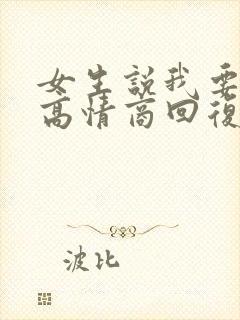 女生説我要
高情商回復
波比